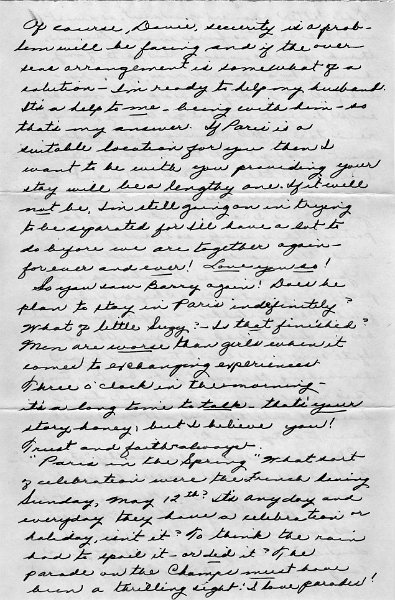 Of course, Dave, security is a prob-
lem well be facing and if the over-
seas arrangement is somewhat of a
solution - I'm ready to help my husband.
It's a help to me - being with him - so
that's my answer. If Paris is a
suitable location for you then I
want to be with you providing your
stay will be a lengthy one. If it will
not be, I'm still going on in trying
to be separated for I'll have a lot to
do before we are together again -
forever and ever! Love you so!
So you saw Barry again! Does he
plan to stay in Paris indefinitely?
What of little Suzy? - Is that finished?
Men are worse than girls when it
comes to exchanging experiences
Three o'clock in the morning -
it's a long time to talk. that's your
story honey, but I believe you!
Trust and faith always.
"Paris in the Spring" What sort
of celebration were the French having
Sunday, May 12th? It's any day and
everyday they have a celebration or
holiday, isn't it? To think the rain
had to spoil it - or did it? The
parade on the Champs must have
been a thrilling sight! I love parades!